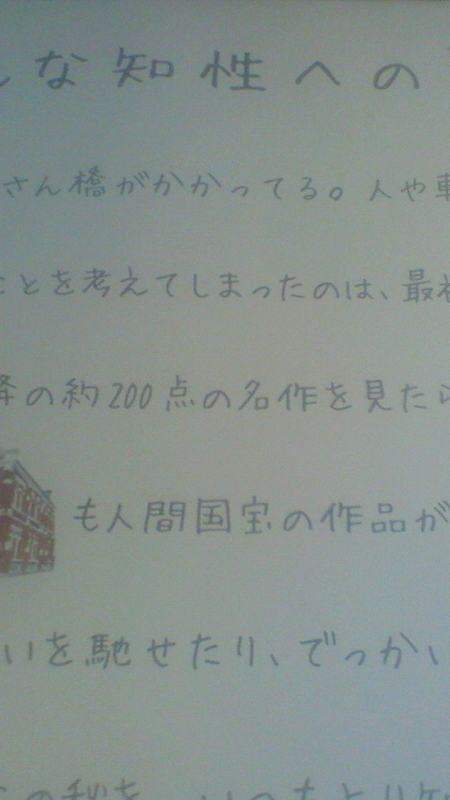 な知性への
さん橋がかかってる。人や車
ことを考えてしまったのは、最初
降の約200点の名作を見たら
も人間国宝の作品が
いを馳せたり、でっかい